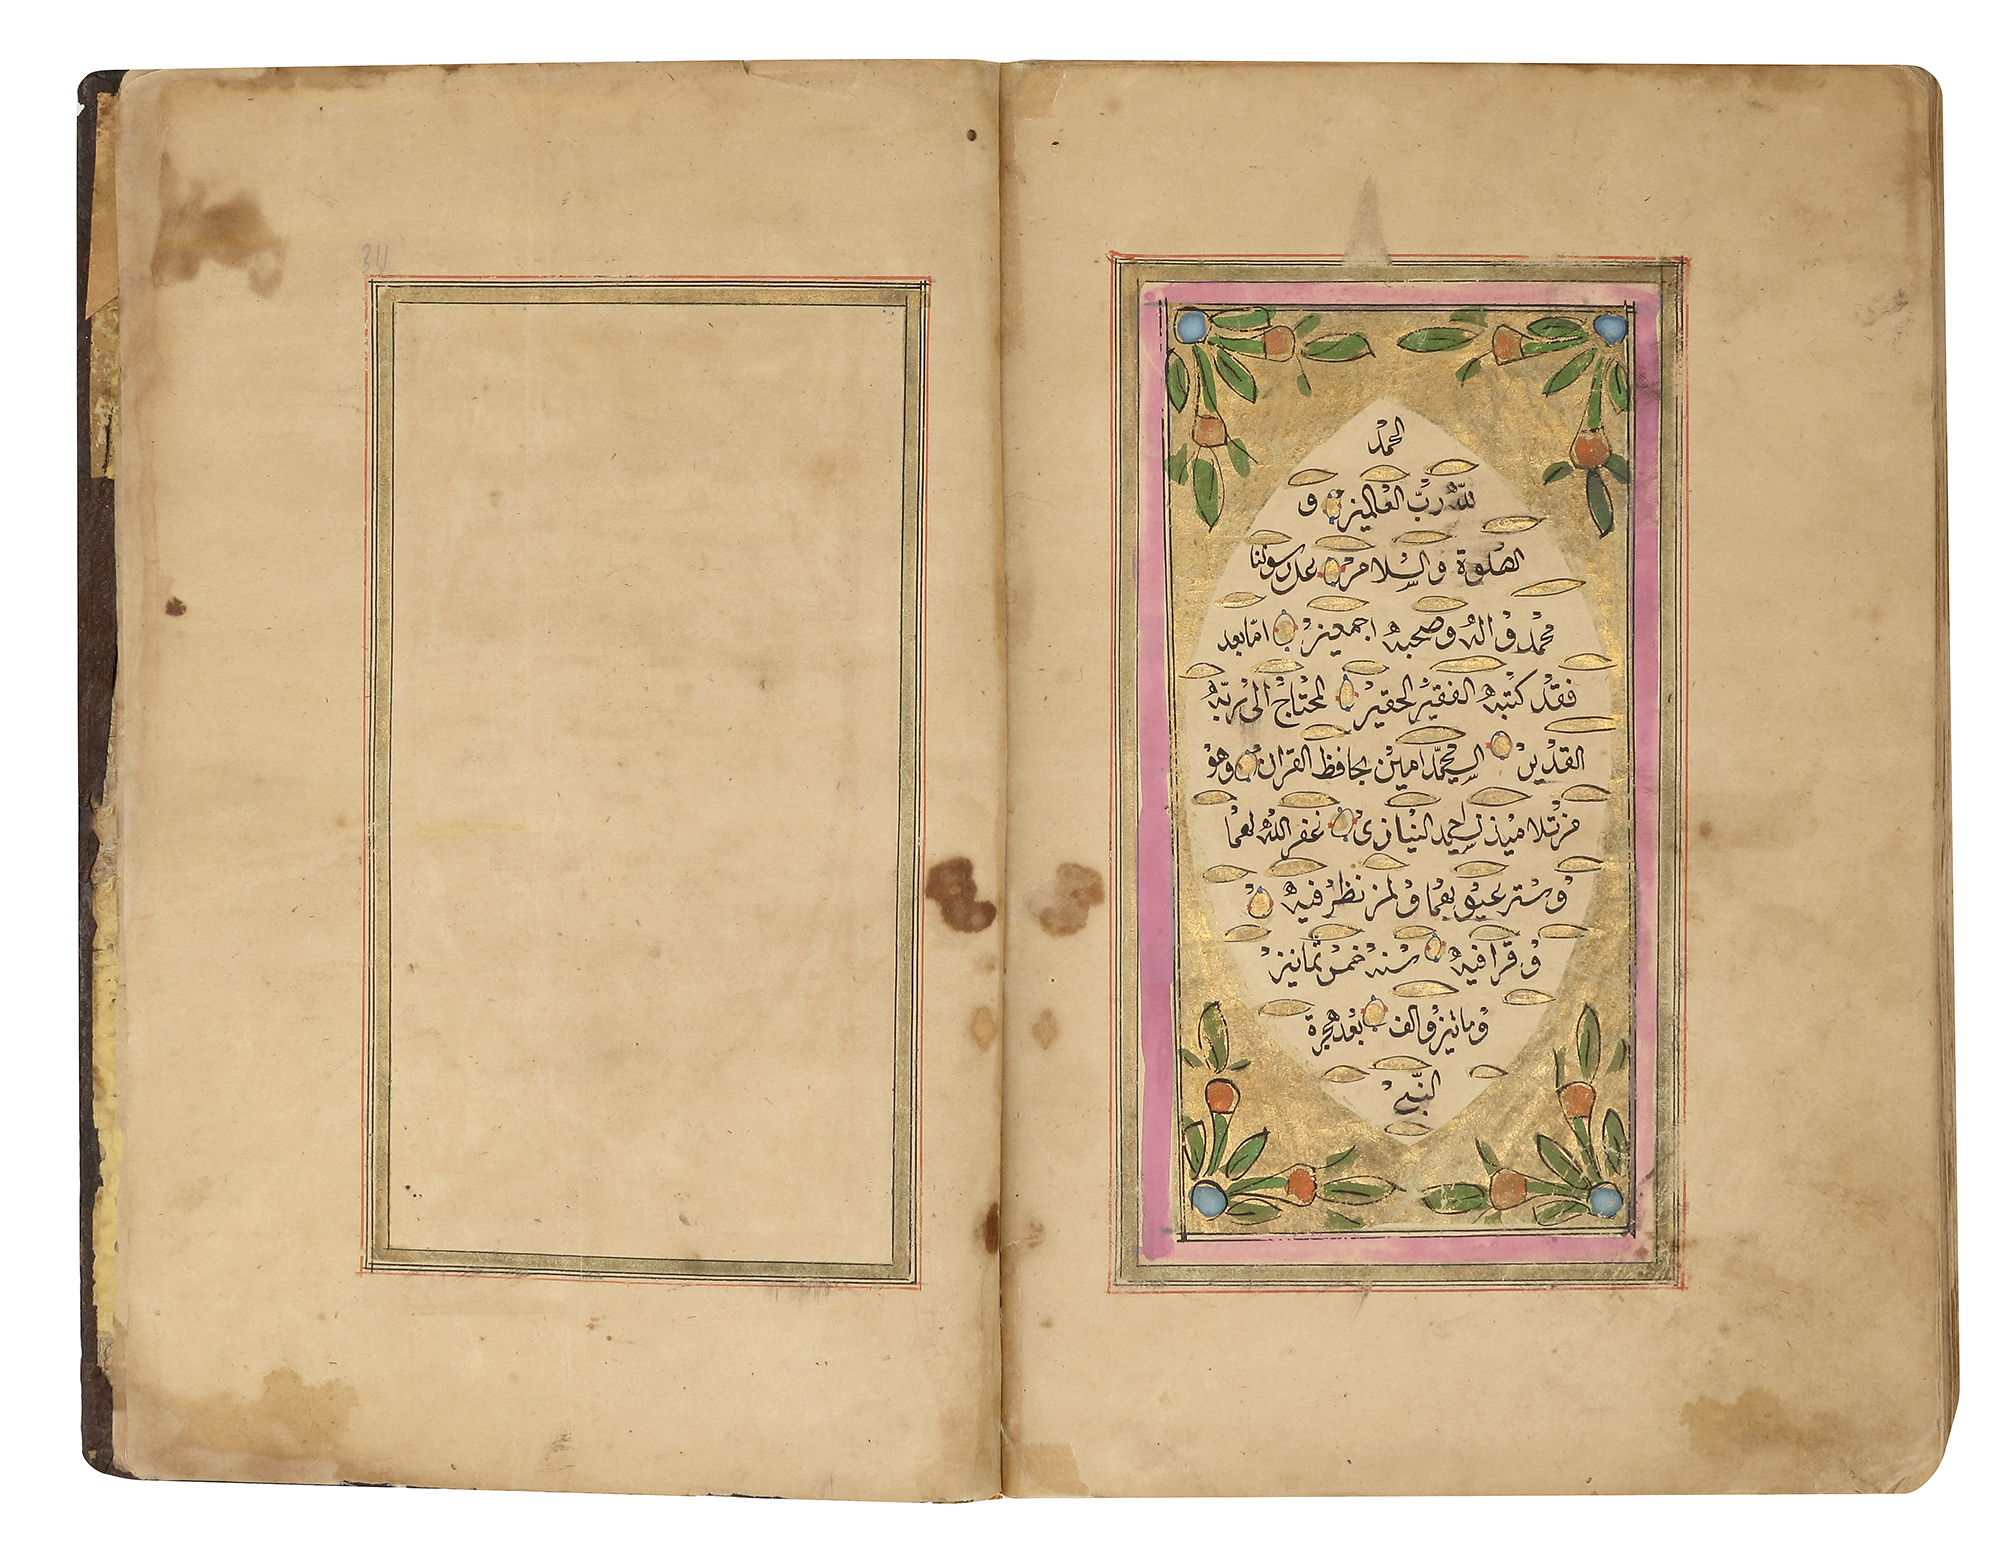 الحمد
لله رب العالمين و
الصلوة والسلام على رسولنا
محمد و اله وصحبه اجمعين امّا بعد
فقد كتبه الفقير الحقير المحتاج الى ربّه
القدير السيد محمّد امين بحافظ القران وهو
من تلاميذ احمد النيازى غفر الله لهما
و ستر عيوبهما و لمن نظر فيه
و قرا فيه سنه خمس ثمانين
و ماتين و الف بعد هجرة
النبى